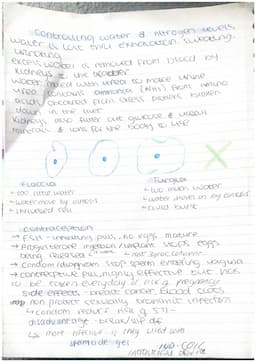 Controlling water & nitrogen levels
water is lost thru exhalation, sweating,
urinating
excess water is removed from blood by
kidneys → the bladder
water mixed with urea to make urine
urea contains ammonia (NH3) from amino
acids obtained from excess proteins broken
down in the liver
Kidneys also filter out glucose & useful
minerals & ions for the body to use
Flaccid Turgid
- too little water - too much water
- water move by osmosis - water moves in by osmosis
- could burst
contraception
→ FSH - in pill, no eggs mature
→ Progesterone injection/implant stops eggs
being released
→ condom/diaphragm stop sperm entering vagina
→ contraceptive pill, highly effective but has
to be taken everyday or risk of pregnancy
side effects - breast cancer, blood clots
non protect sexually transmit infection
↳ condom reduce risk of STI -
disadvantage - break/
↳ more effective if they used with
spermicide gel
IUD - COIL
intrauterine device